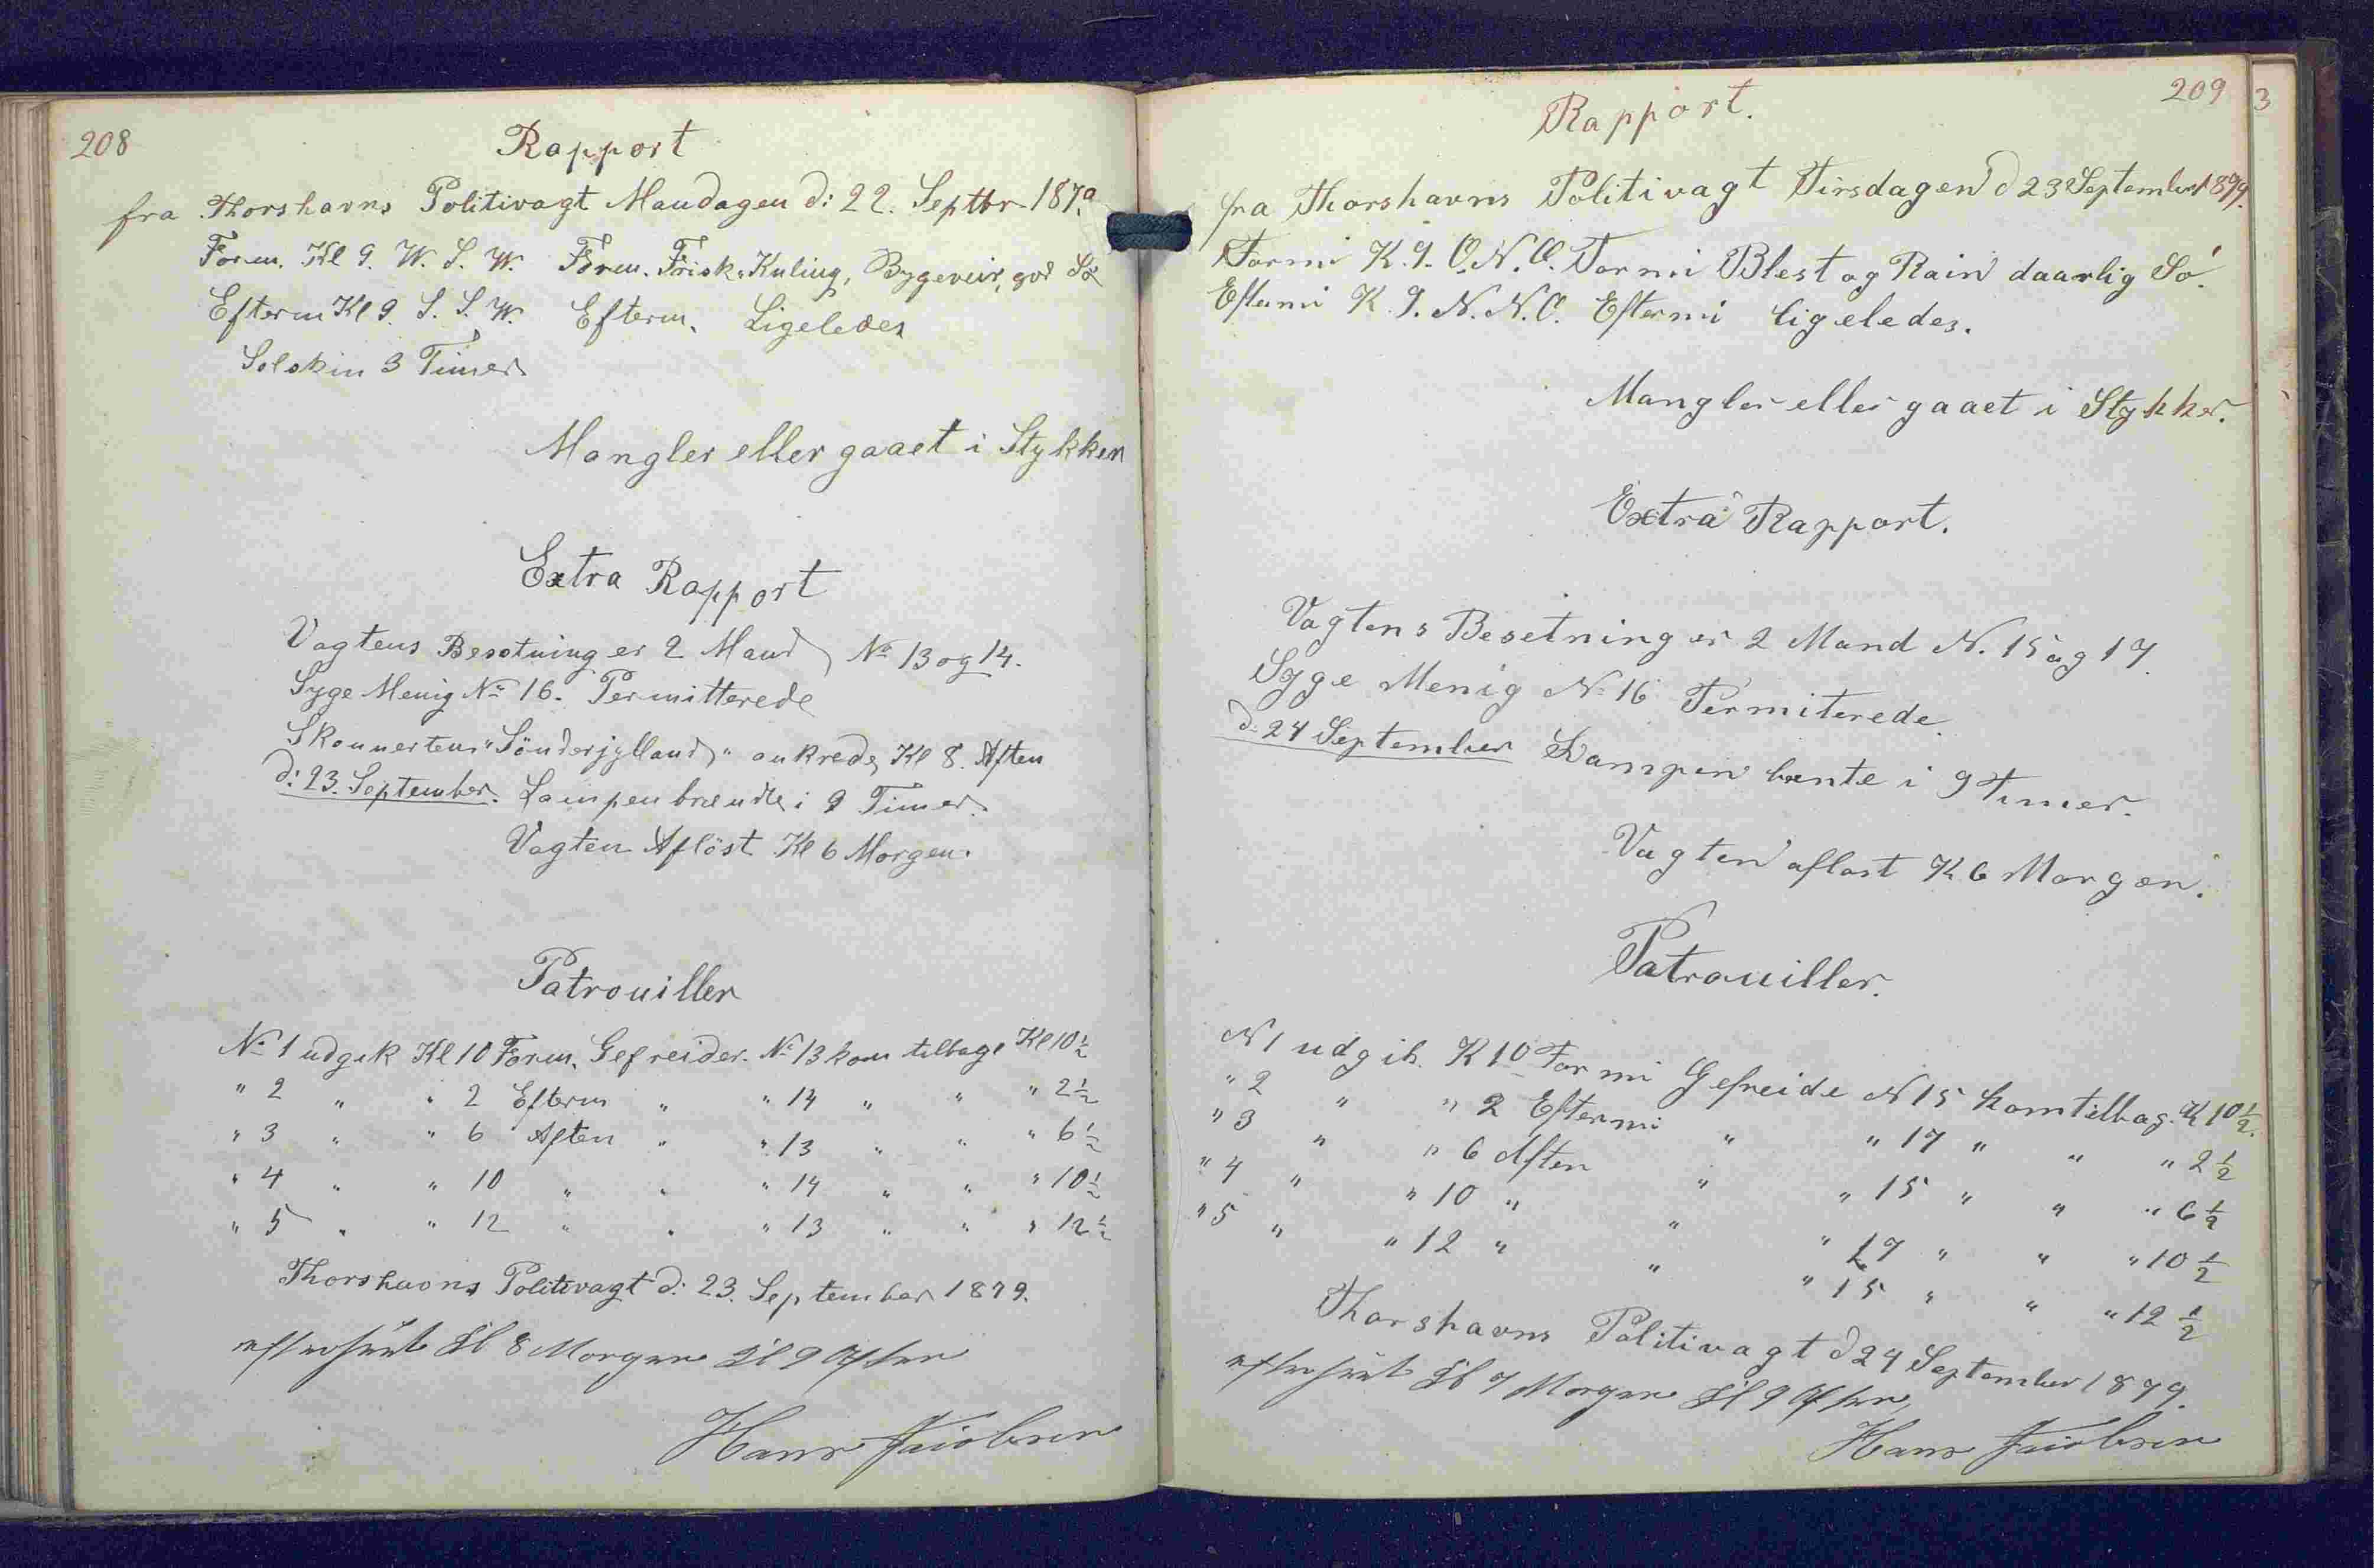 208
Rapport
fra Thorshavns Politivagt Mandagen d: 22. Septbr 1879.
Form. Kl 9. W. S. W. Form. Frisk-Kuling, Bygeveir, god Sö
Efterm Kl 9. S. S. W. Efterm. Ligeledes
Solskin 3 Timer
Mangler eller gaaet i Stykker
Extra Rapport
Vagtens Besetning er 2 Mand No 13 og 14.
Syge Menig No 16. Permitterede
Skonnerten "Sönderjylland" ankrede Kl 8. Aften
d: 23. September. Lampen brændte i 9 Timer.
Vagten Aflöst Kl 6 Morgen.
Patrouiller
No 1 udgik Kl 10 Form. Gefreider. No 13 kom tilbage Kl 10½
" 2 " " 2 Efterm " " 14 " " " 2½
" 3 " " 6 Aften " " 13 " " " 6½
" 4 " " 10 " " " 14 " " " 10½
" 5 " " 12 " " " 13 " " " 12½
Thorshavns Politivagt d: 23. September 1879.
efterseet Kl 8 Morgen Kl 9 Aften
Hans Jacobsen
209
3
Rapport.
fra Thorshavns Politivagt Tirsdagen d 23 September 1879.
Formi K. 9. O. N. O. Formi Blest og Rain daarlig Sö.
Eftermi K. 9. N. N. O. Eftermi ligeledes.
Mangler eller gaaet i Stykker.
Extra Rapport.
Vagtens Besetning er 2 Mand N. 15 og 17.
Syge Menig No 16 Permiterede.
d. 24 September Lampen brente i 9 Timer.
Vagten aflast K 6 Morgen.
Patrouiller.
N 1 udgik K 10 Formi Gefreide N 15 kom tilbag. K 10½.
" 2 " " 2 Eftermi " " 17 " " " 2½
" 3 " " 6 Aften " " 15 " " " 6½
" 4 " " 10 " " " 17 " " " 10½
" 5 " " 12 " " " 15 " " " 12½
Thorshavns Politivagt d 24 September 1879.
efterseet Kl 7 Morgen Kl 9 Aften
Hans Jacobsen